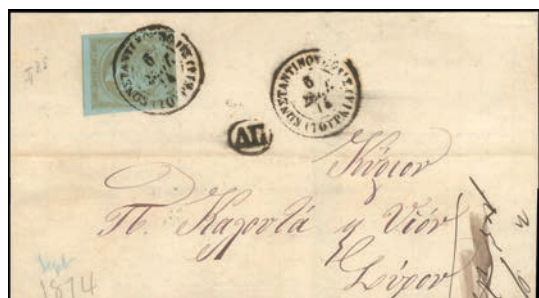 ΚΩΝΣΤΑΝΤΙΝΟΥΠΟΛΙΣ (ΤΟΥΡΚΙΑ)
6
74
ΚΩΝΣΤΑΝΤΙΝΟΥΠΟΛΙΣ (ΤΟΥΡΚΙΑ)
6
74
ΑΠ
Κύριον
Π. Καλουτά & Υιόν
Σύρον
Sept
1874